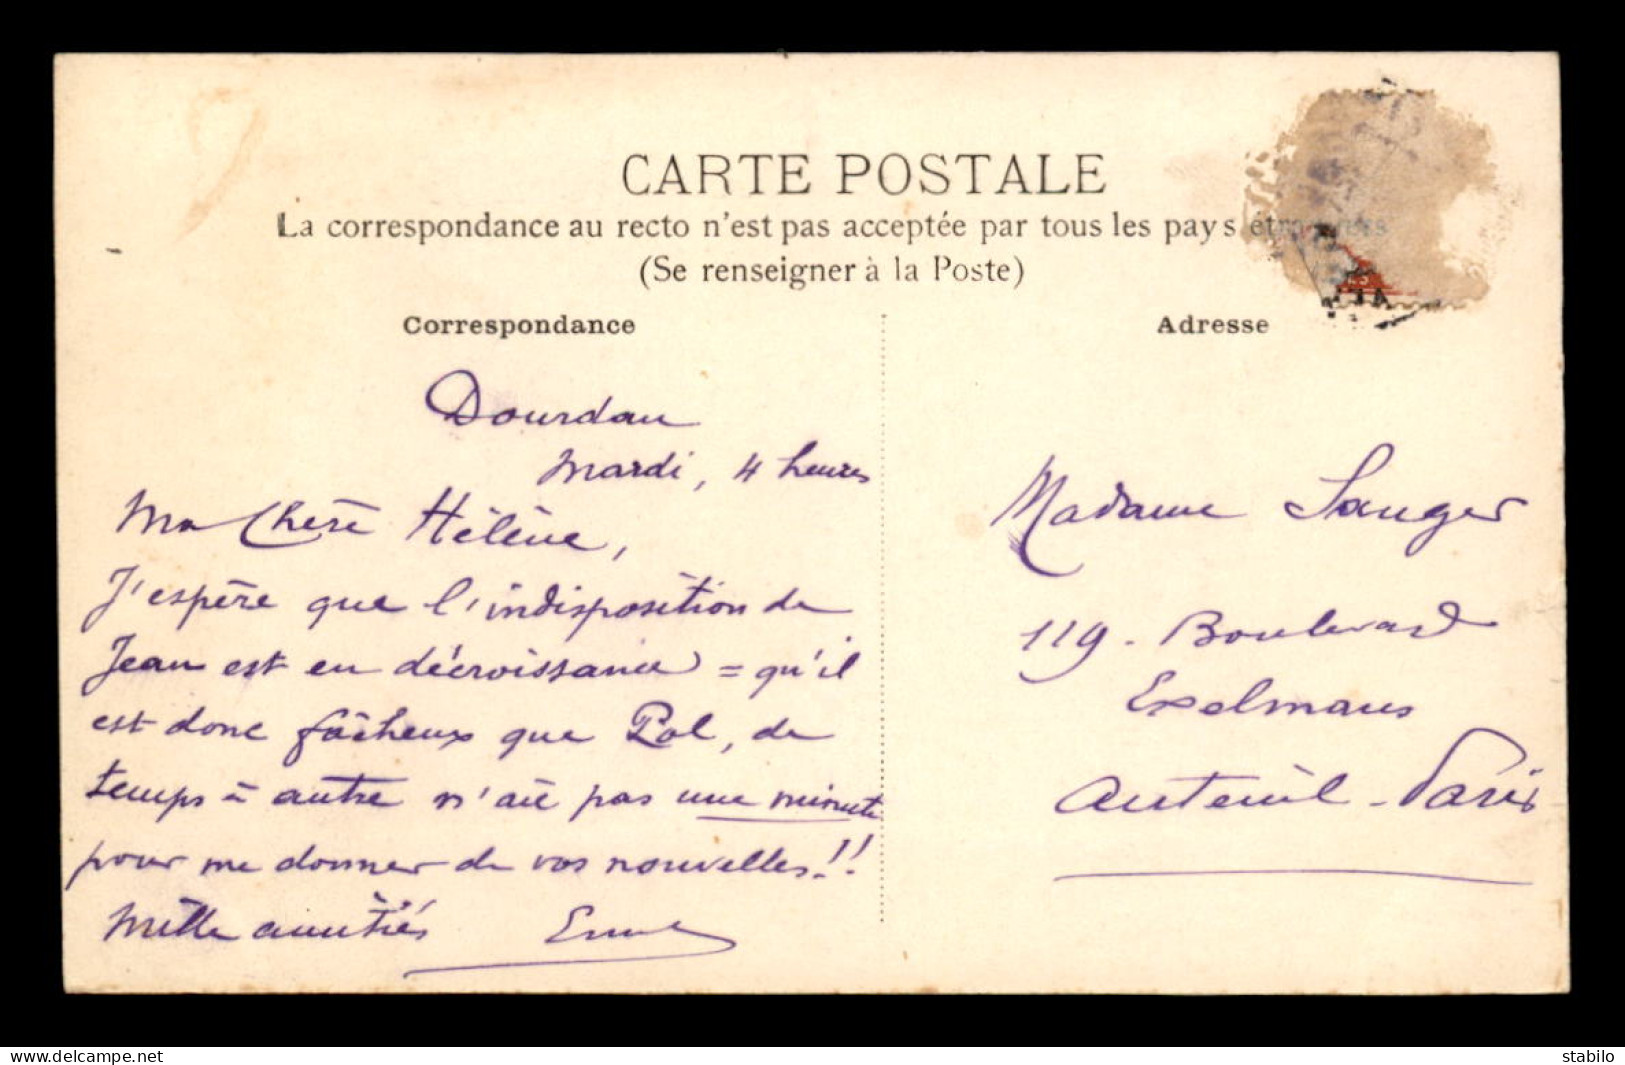 CARTE POSTALE
La correspondance au recto n'est pas acceptée par tous les pays étrangers
(Se renseigner à la Poste)
Correspondance
Dourdan
Mardi, 4 heures
Ma chère Hélène,
J'espère que l'indisposition de
Jean est en décroissance = qu'il
est donc fâcheux que Pol, de
temps à autre n'ait pas une minute
pour me donner de vos nouvelles!!
Mille amitiés
Adresse
Madame Sauger
119. Boulevard
Exelmans
Auteuil - Paris
www.delcampe.net
stabilo